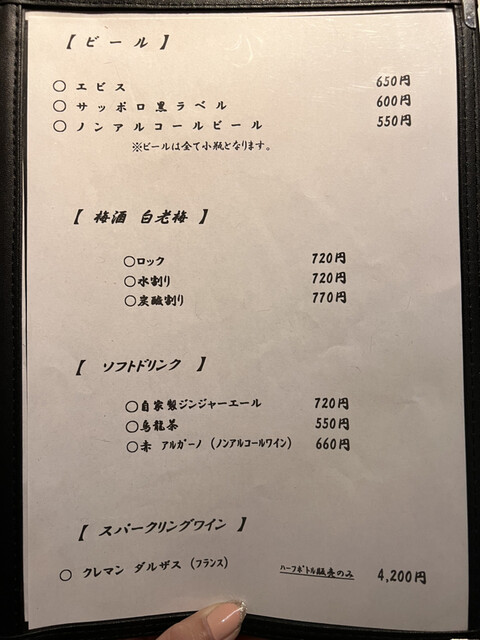 【 ビール 】
○ エビス 650円
○ サッポロ黒ラベル 600円
○ ノンアルコールビール 550円
※ビールは全て小瓶となります。
【 梅酒 白老梅 】
○ロック 720円
○水割り 720円
○炭酸割り 770円
【 ソフトドリンク 】
○自家製ジンジャーエール 720円
○烏龍茶 550円
○赤 アルガーノ (ノンアルコールワイン) 660円
【 スパークリングワイン 】
○ クレマン ダルザス (フランス) ハーフボトル販売のみ 4,200円